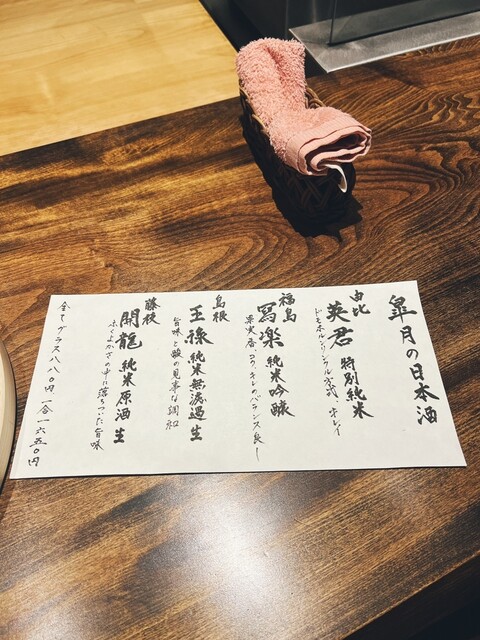 皐月の日本酒
由比
英君 特別純米
ドモホルンリンクル方式、キレイ
福島
冩楽 純米吟醸
果実香、コク、キレのバランス良し
島根
王祿 純米無濾過生
旨味と酸の見事な調和
藤枝
開龍 純米原酒生
ふくよかさの中に落ちついた旨味
全てグラス八八〇円 一合一六五〇円